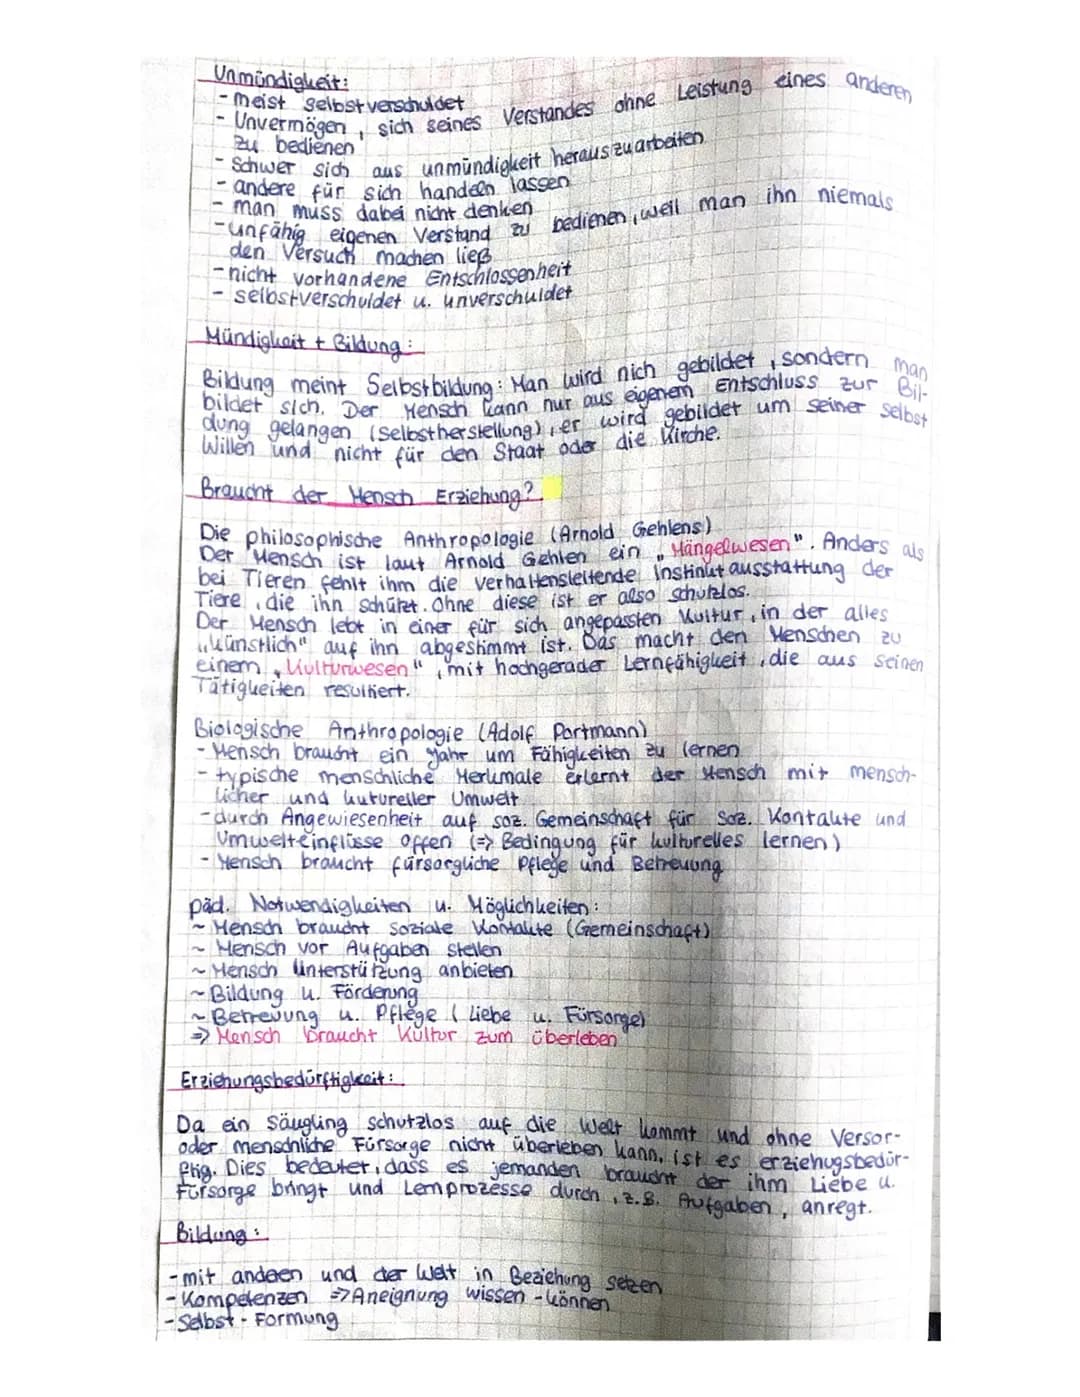 Unmündigkeit:
- meist selbstverschuldet
- Unvermögen, sich seines Verstandes ohne Leistung eines anderen
zu bedienen
- Schwer sich aus unmündigkeit herauszuarbeiten
- andere für sich handeln lassen
- man muss dabei nicht denken
- unfähig eigenen Verstand zu bedienen, weil man ihn niemals
den Versuch machen ließ
- nicht vorhandene Entschlossenheit
- selbstverschuldet u. unverschuldet
Mündigkeit + Bildung:
Bildung meint Selbstbildung: Man wird nich gebildet, sondern man
bildet sich. Der Mensch kann nur aus eigenem Entschluss zur Bil-
dung gelangen (Selbstherstellung), er wird gebildet um seiner selbst
Willen und nicht für den Staat oder die Kirche.
Braucht der Mensch Erziehung?
Die philosophische Anthropologie (Arnold Gehlens)
Der Mensch ist laut Arnold Gehlen ein „Mängelwesen". Anders als
bei Tieren fehlt ihm die verhaltensleitende Instinktausstattung der
Tiere, die ihn schützt. Ohne diese ist er also schutzlos.
Der Mensch lebt in einer für sich angepassten Kultur, in der alles
„künstlich" auf ihn abgestimmt ist. Das macht den Menschen zu
einem „Kulturwesen", mit hochgerader Lernfähigkeit, die aus seinen
Tätigkeiten resultiert.
Biologische Anthropologie (Adolf Portmann)
- Mensch braucht ein Jahr um Fähigkeiten zu lernen
- typische menschliche Merkmale erlernt der Mensch mit mensch-
licher und kutureller Umwelt
- durch Angewiesenheit auf soz. Gemeinschaft für soz. Kontakte und
Umwelteinflüsse offen (=> Bedingung für kulturelles lernen)
- Mensch braucht fürsorgliche Pflege und Betreuung
päd. Notwendigkeiten u. Möglichkeiten:
~ Mensch braucht soziale Kontakte (Gemeinschaft)
~ Mensch vor Aufgaben stellen
~ Mensch Unterstützung anbieten
~ Bildung u. Förderung
~ Betreuung u. Pflege (Liebe u. Fürsorge)
=> Mensch braucht Kultur zum überleben
Erziehungsbedürftigkeit:
Da ein Säugling schutzlos auf die Welt kommt und ohne Versor-
oder menschliche Fürsorge nicht überleben kann, ist es erziehugsbedür-
ftig. Dies bedeutet, dass es jemanden braucht der ihm Liebe u.
Fürsorge bringt und Lernprozesse durch, z.B. Aufgaben, anregt.
Bildung:
- mit anderen und der Welt in Beziehung setzen
- Kompetenzen => Aneignung wissen - können
- Selbst - Formung